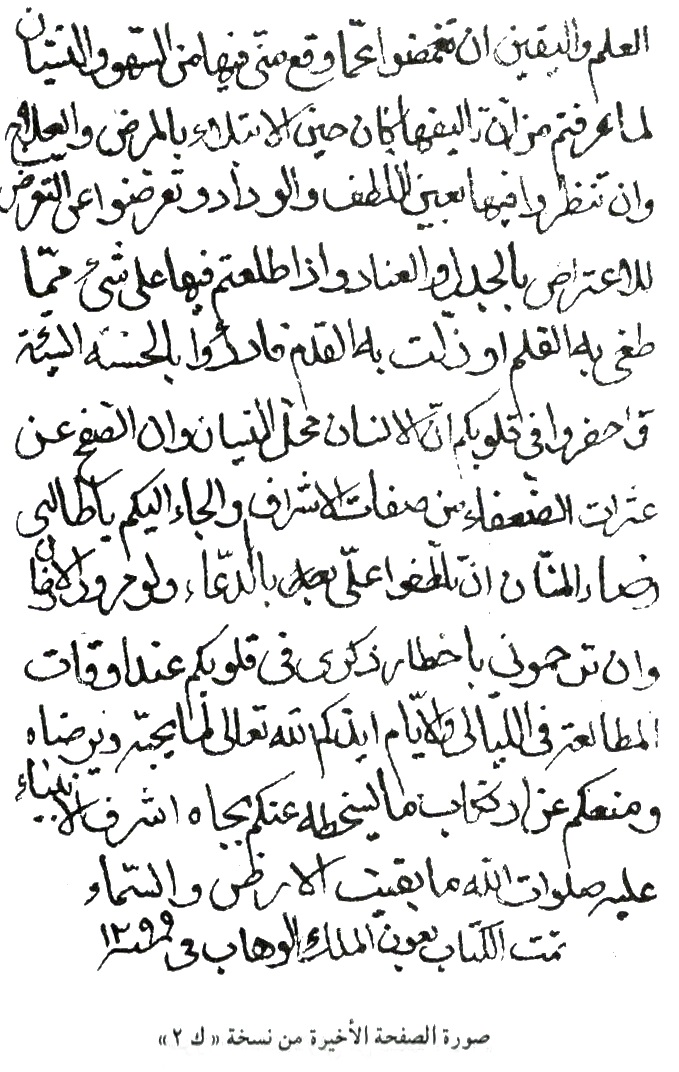 العلم واليقين ان تغمضوا عمّا وقع منّي فيها من السّهو والنّسيان
لما عرفتم من انّ تاليفها كان حين الابتلاء بالمرض والعلاج
وان تنظروا فيها بعين اللطف والوداد وتعرضوا عن التعرض
للاعتراض بالجدل والعناد واذا طلعتم فيها على شئ ممّا
طغى به القلم او زلّت به القدم فادرؤا بالحسنه السيّئة
واحفروا في قلوبكم انّ الانسان محلّ النسيان وان الصّفح عن
عثرات الضّعفاء من صفات الاشراف والجاء اليكم يا طالبي
رضاء المنّان ان تلطفوا علىّ بالدّعاء ولو مرور
وان ترحموني باخطار ذكرى في قلوبكم عند اوقات
المطالعة في اللّيالي والايّام ايدكم الله تعالى لما يحبّه ويرضاه
ومنعكم عن ارتكاب ما يسخطه عنكم بجاه اشرف الانبياء
عليه صلوات الله ما بقيت الارض والسّماء
تمت الكتاب بعون الملك الوهاب في
صورة الصفحة الأخيرة من نسخة «ك ٢»